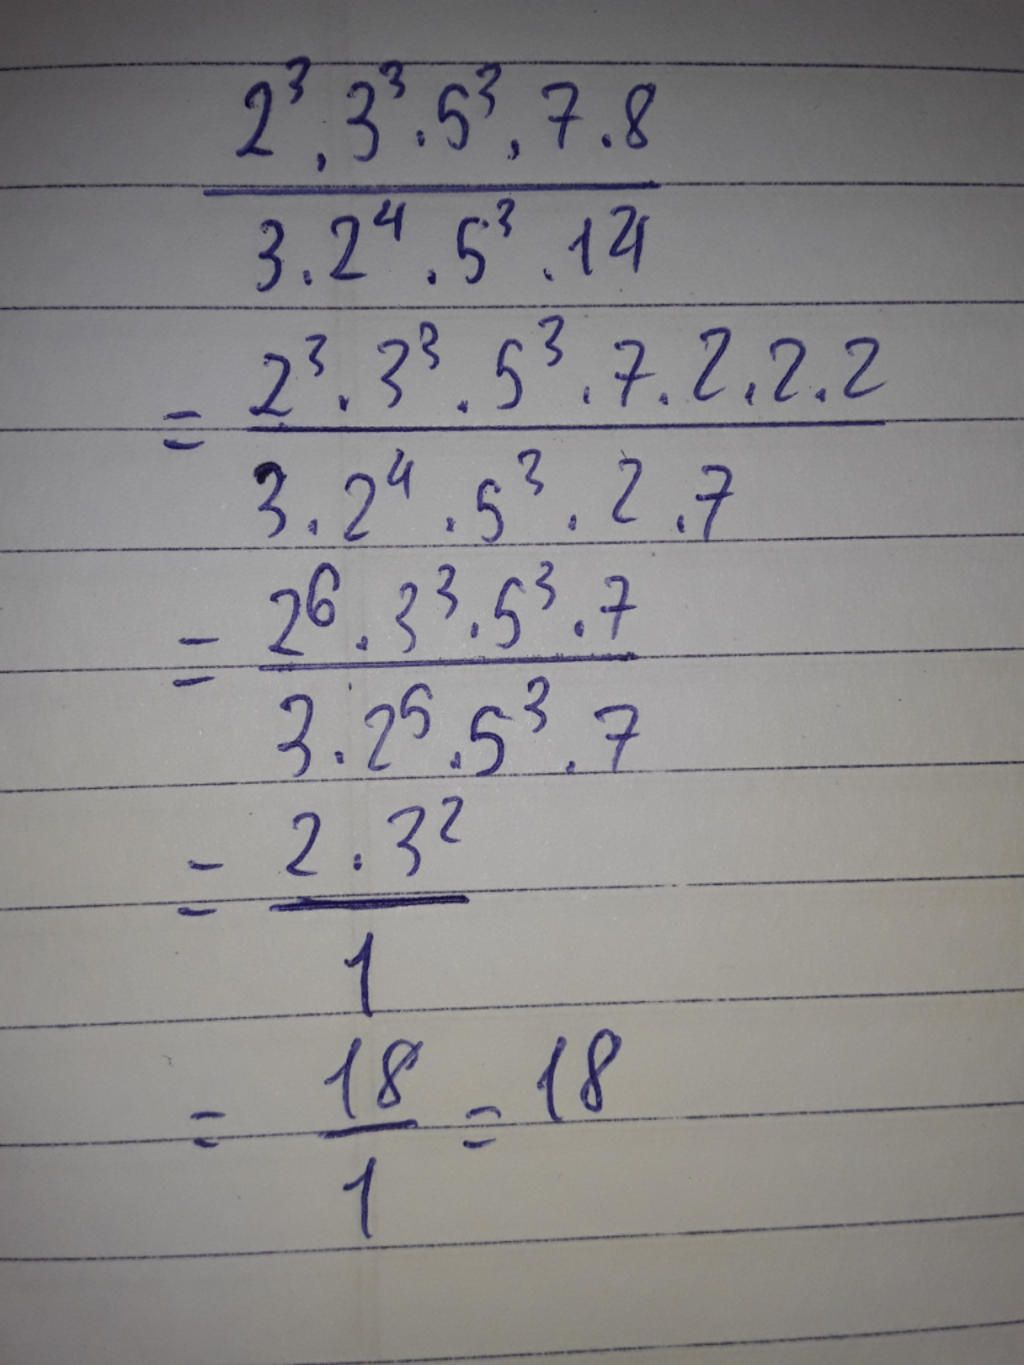 2³ . 3³ . 5³ . 7 . 8
3 . 2⁴ . 5³ . 14
= 2³ . 3³ . 5³ . 7 . 2 . 2 . 2
3 . 2⁴ . 5³ . 2 . 7
= 2⁶ . 3³ . 5³ . 7
3 . 2⁵ . 5³ . 7
= 2 . 3²
1
= 18 = 18
1